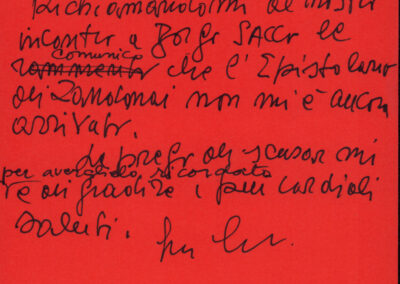 Richiamandomi ai nostri
incontri a Borgo Sacco le
comunico
rammento che l'Epistolario
dei Zandonai non mi è ancora
arrivato.
La prego di scusarmi
per averglielo ricordato
e di gradire i più cordiali
saluti.